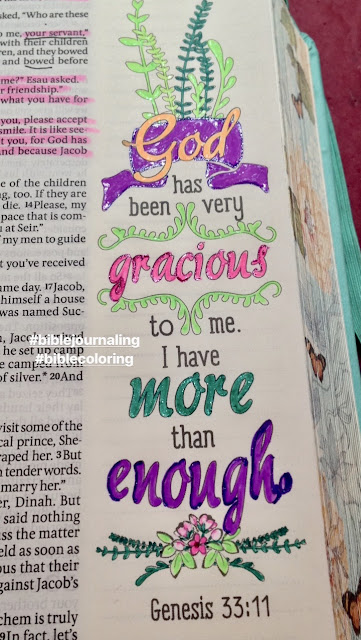 asked, "Who are these
me, your servant,"
with their children
and they bowed
and bowed before
me?" Esau asked.
friendship."
what you have for
you, please accept
smile. It is like see-
you, for God has
and because Jacob
of the children
too. If they are
die. 14Please, my
pace that is com-
at Seir."
my men to guide
you've received
day. 17Jacob,
himself a house
was named Suc-
he set up camp
camped from
of silver." 20And
visit some of the
prince, She-
raped her. 3But
tender words.
marry her."
Dinah. But
said nothing
the matter
as soon as
that their
Jacob's
is truly
9In fact, let's
God
has
been very
gracious
to me.
I have
more
than
enough.
Genesis 33:11
#biblejournaling
#biblecoloring